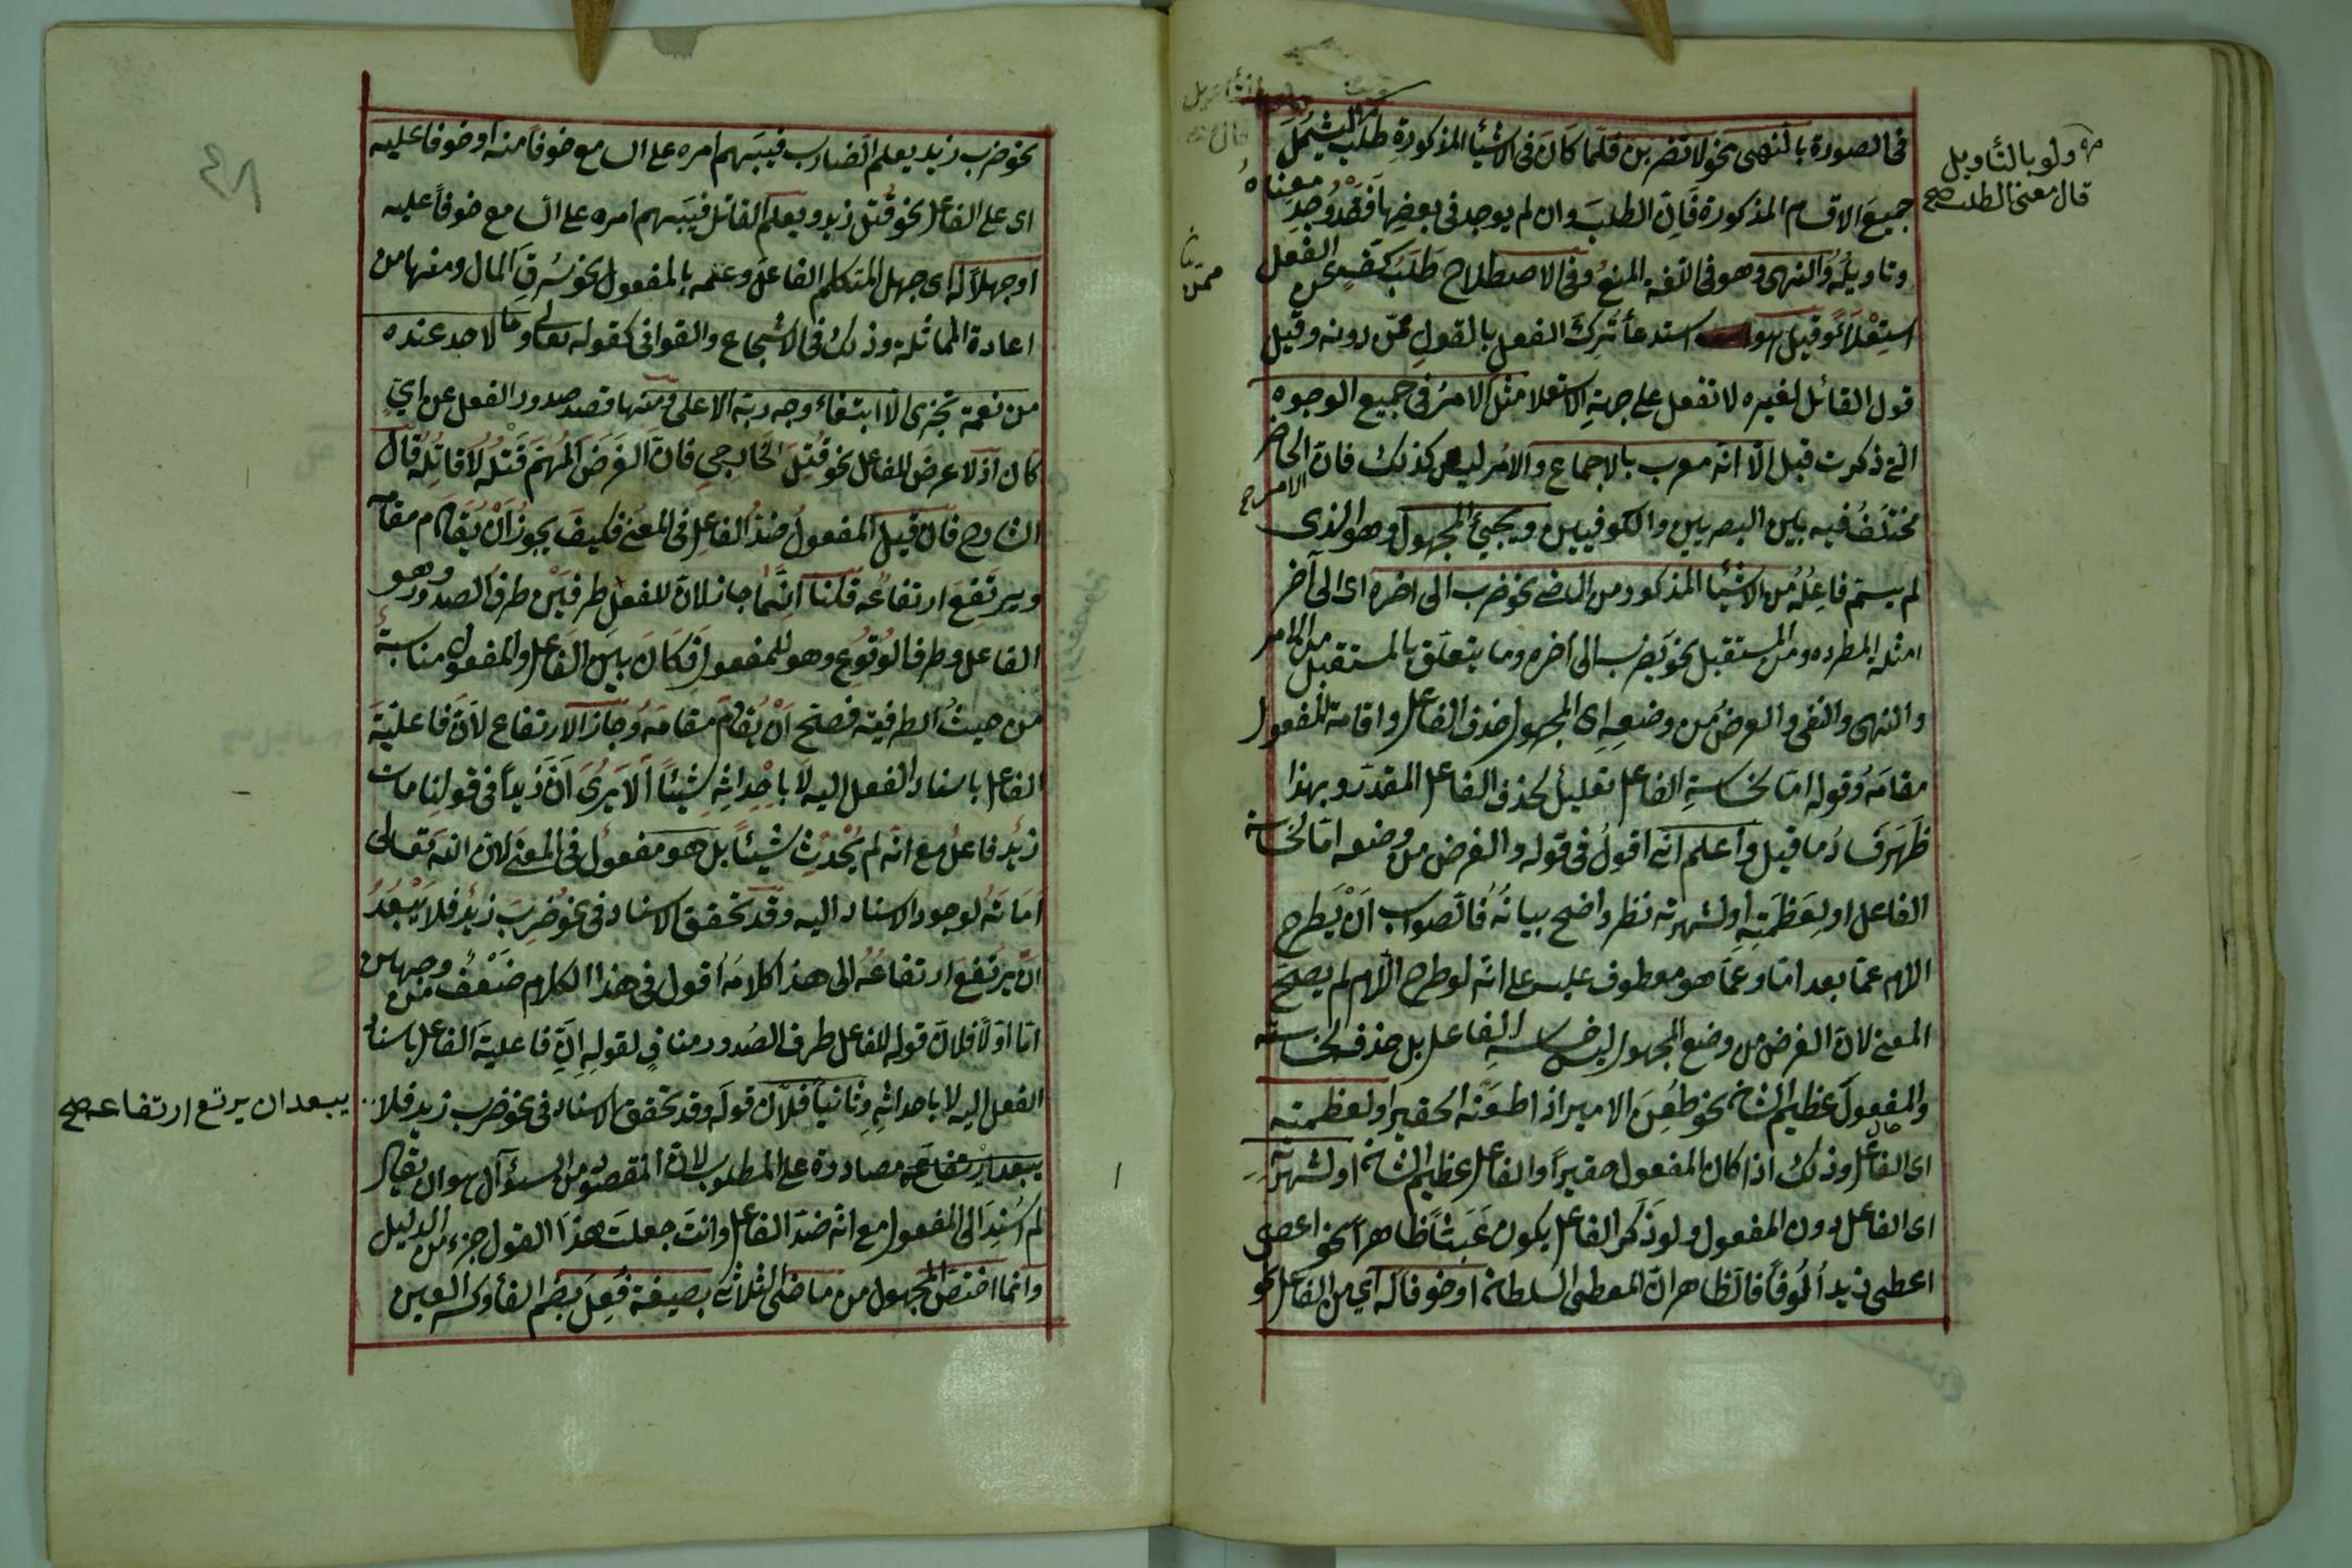 فى الصورة بالنهى نحو لا تضربن فلما كان فى الاشيأ المذكورة طلب ليشمل
جميع الاقسام المذكورة فان الطلب وان لم يوجد فى بعضها فقد وجد معناه
وتاويله والنهى وهو فى اللغة المنع وفى الاصطلاح طلب كف عن الفعل
استعلائ وقيل هو استدعأ ترك الفعل بالقول ممن دونه وقيل
قول القائل لغيره لا تفعل على جهة الاستعلا مثل الامر فى جميع الوجوه
التى ذكرت قبل الا انه معرب بالاجماع والامر ليس كذلك فان الامر الحاضر
مختلف فيه بين البصريين والكوفيين ويجيئ المجهول وهو الذى
لم يسم فاعله من الاشيأ المذكور من الماضى نحو ضرب الى اخره اى الى آخر
امثله المطرده ومن المستقبل نحو يضرب الى اخره وما يتعلق بالمستقبل من الامر
والنهى والنفى والعرض من وضعه اى المجهول حذف الفاعل واقامة المفعول
مقامه وقوله اما لخساسة الفاعل تعليل لحذف الفاعل المقدر وبهذا
ظهر فساد ما قيل واعلم انه اقول فى قوله والغرض من وضعه اما لخساسة
الفاعل او لعظمته او لشهرته نظر واضح بيانه فالصواب ان يطرح
اللام عما بعد اما وعما هو معطوف عليه على انه لو طرح اللام لم يصلح
المعنى لان الغرض من وضع المجهول ليس خساسة الفاعل بل حذف لخساسته
والمفعول عظيم الشان نحو طعن الامير اذا طعنه الحقير او لعظمته
اى الفاعل وذلك اذا كان المفعول حقيرا والفاعل عظيم الشان او لشهرته
اى الفاعل دون المفعول ولو ذكر الفاعل يكون عبثا ظاهرا نحو اعطى
اعطى زيد ألوفا فالظاهر ان المعطى السلطان او خوفا له اى من الفاعل نحو
ولو بالتأويل
قال معنى الطلب صح
نحو ضرب زيد يعلم الضارب فيبهم امره على السامع خوفا منه او خوفا عليه
اى على الفاعل نحو قتل زيد ويعلم القاتل فيبهم امره على السامع خوفا عليه
او جهلا له اى جهل المتكلم الفاعل وعلمه بالمفعول نحو سرق المال ومنها من
اعادة المماثلة وذلك فى الاسجاع والقوافى كقوله تعالى وما لاحد عنده
من نعمة تجزى الا ابتغاء وجه ربه الاعلى ومنها قصد صدور الفعل عن اى
كان اذ لا عرض للفاعل نحو قتل الخارجى فان الغرض المهم قتله لا قاتله قال
الشارح فان قيل المفعول ضد الفاعل فى المعنى فكيف يجوز ان يقام مقامه
ويرتفع ارتفاعه قلنا انما جاز لان للفعل طرفين طرف الصدور وهو
الفاعل وطرف الوقوع وهو للمفعول فكان بين الفاعل والمفعول مناسبة
من حيث الطرفية فصح ان يقام مقامه وجاز الارتفاع لان فاعلية
الفاعل باسناد الفعل اليه لا باحداثه شيئا ألا يرى ان زيدا فى قولنا مات
زيد فاعل مع انه لم يحدث شيئا بل هو مفعول فى المعنى لان الله تعالى
اماته لوجود الاسناد اليه وقد تحقق الاسناد فى نحو ضرب زيد فلا يبعد
ان يرتفع ارتفاعه الى هذا كلامه اقول فى هذا الكلام ضعف من وجهين
اما اولا فلان قوله للفاعل طرف الصدور مناف لقوله ان فاعلية الفاعل باسناد
الفعل اليه لا باحداثه وثانيا فلان قوله وقد تحقق الاسناد فى نحو ضرب زيد فلا
يبعد ارتفاعه مصادرة على المطلوب لان المقصود من السؤال هو ان يقال
لم اسند الى المفعول مع انه ضد الفاعل وانت جعلت هذا القول جزء من الدليل
وانما اختص المجهول من ماضى الثلاثى بصيغة فعل بضم الفأ وكسر العين
يبعد ان يرتع ارتفاعه صح